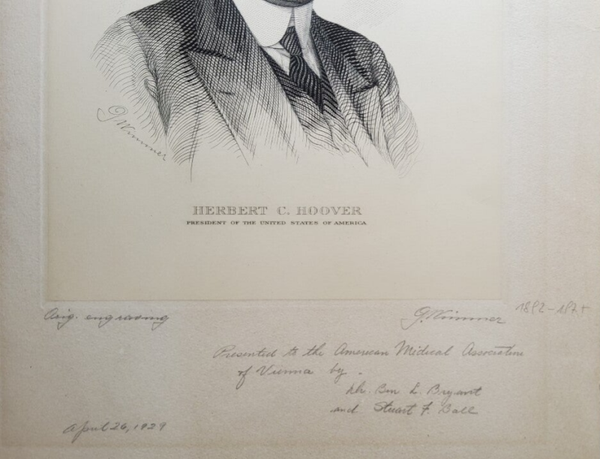 G. Wimmer
HERBERT C. HOOVER
PRESIDENT OF THE UNITED STATES OF AMERICA
Orig. engraving
G. Wimmer
Presented to the American Medical Association
of Vienna by.
Drs. Bm L. Bryant
and Stuart F. Ball
April 26, 1929